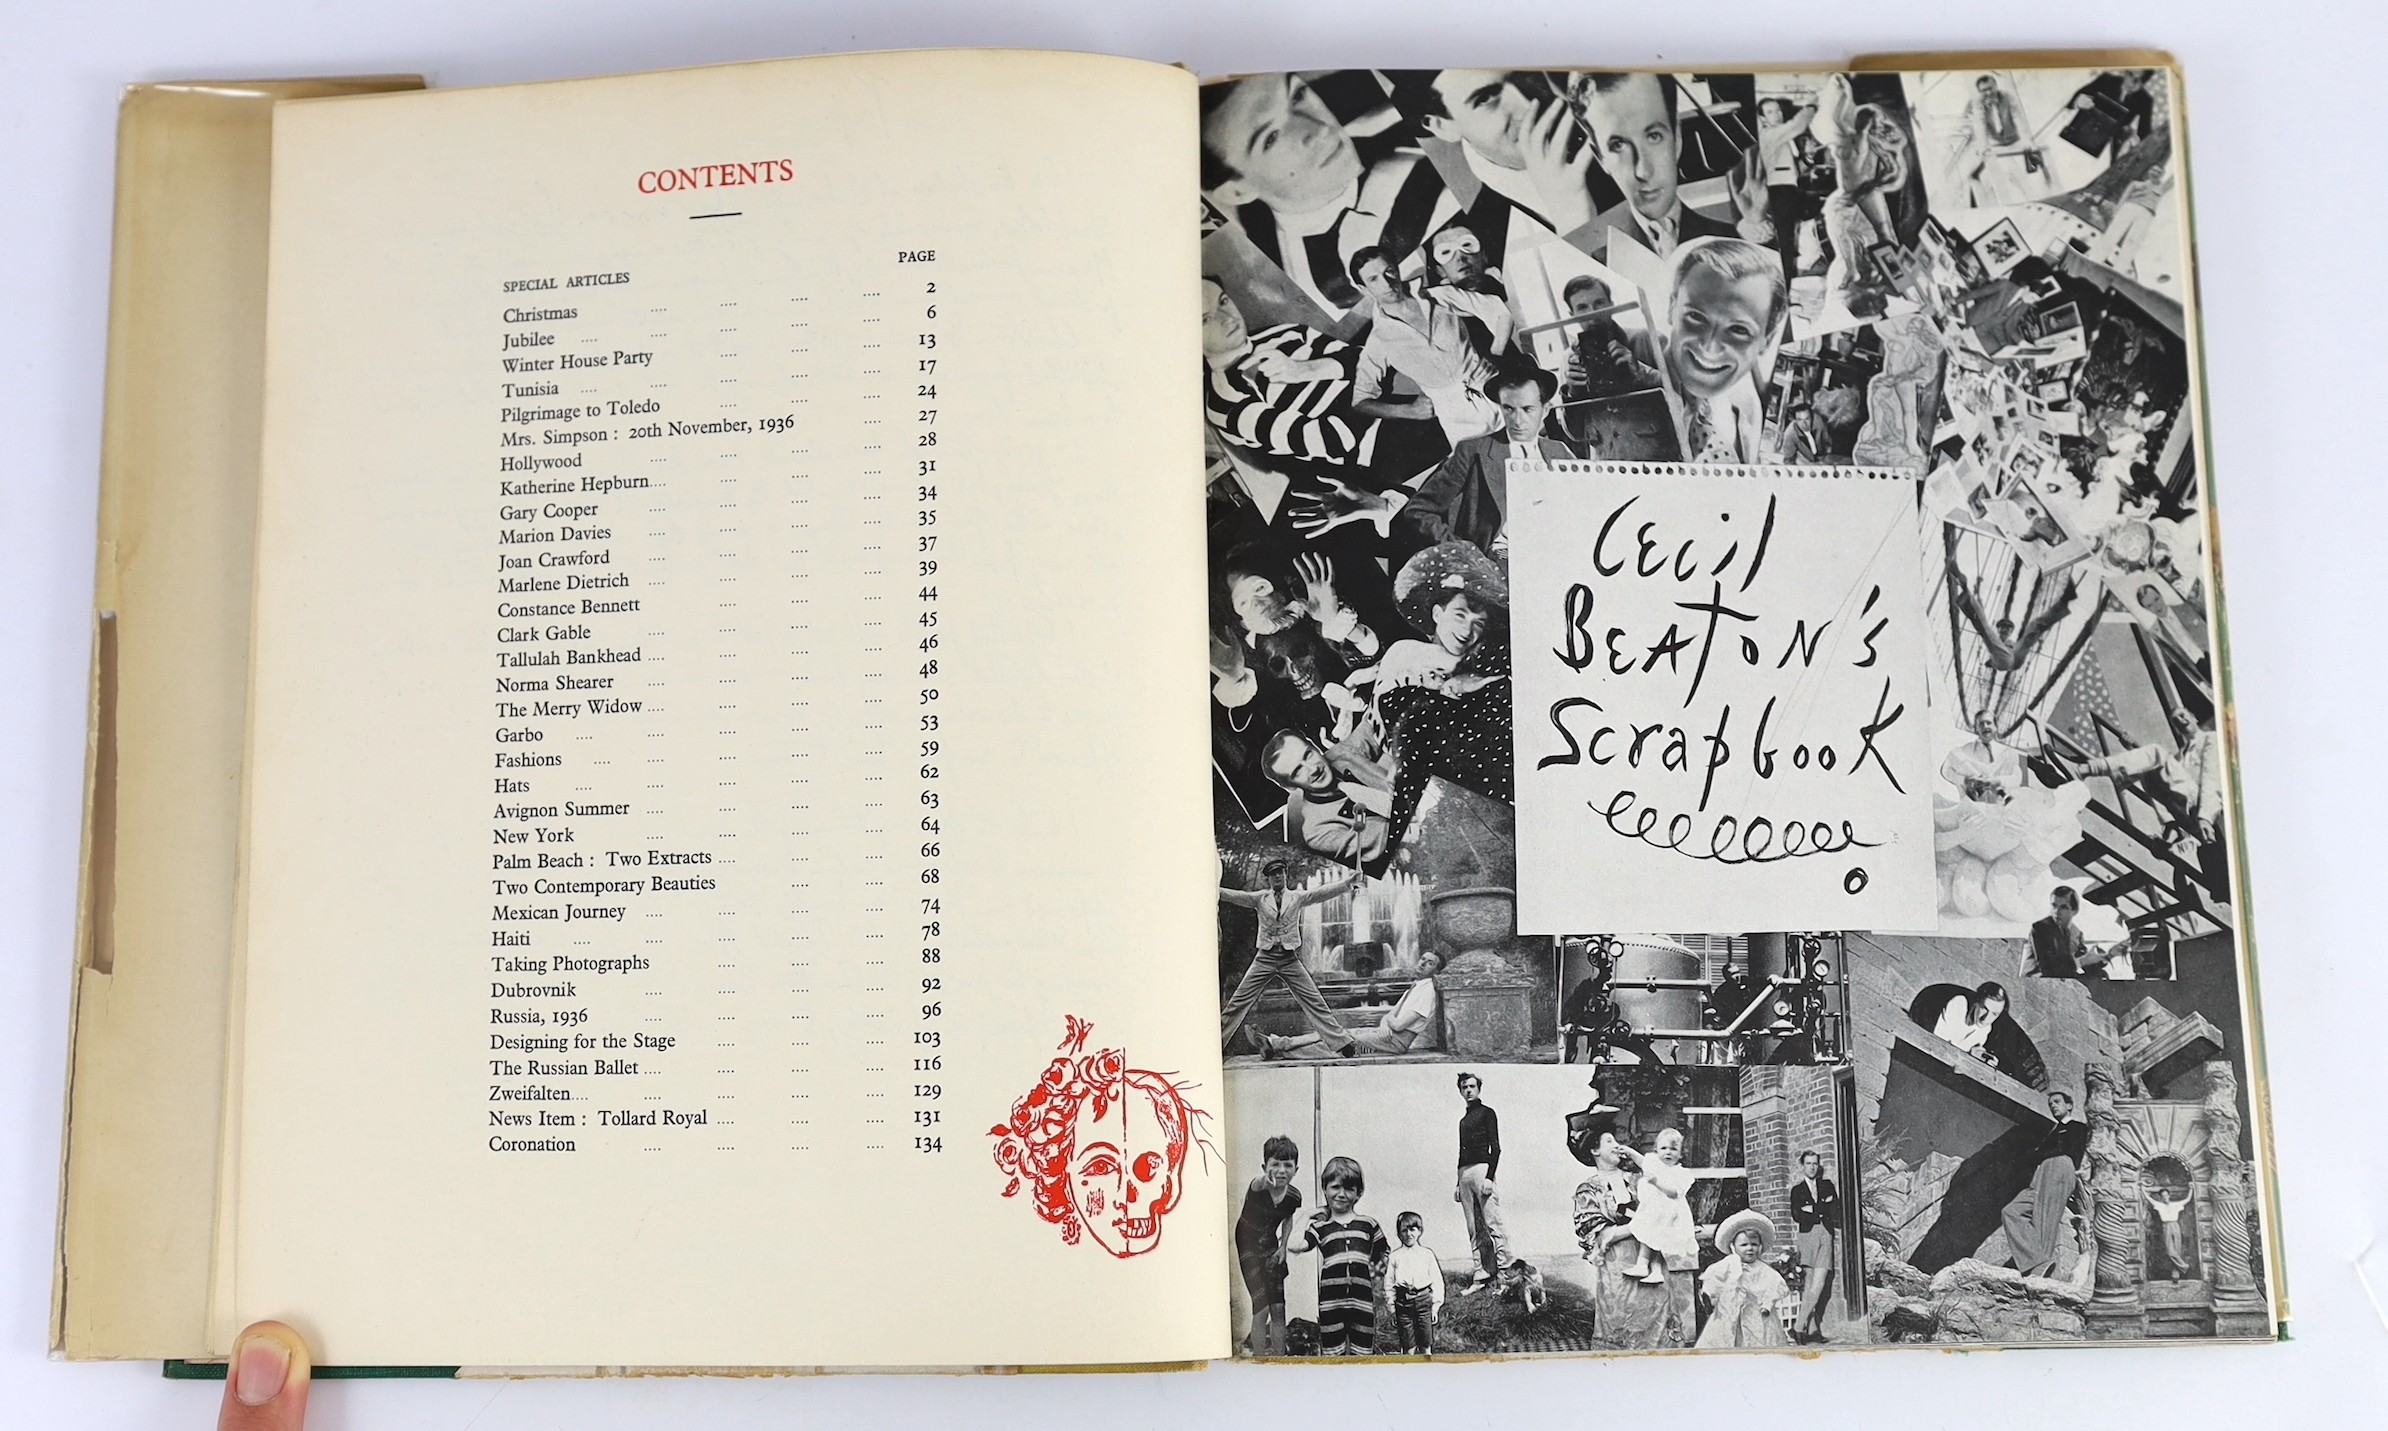 CONTENTS
PAGE
SPECIAL ARTICLES
Christmas .... .... .... .... 2
Jubilee .... .... .... .... 6
Winter House Party .... .... .... 13
Tunisia .... .... .... .... .... 17
Pilgrimage to Toledo .... .... .... 24
Mrs. Simpson : 20th November, 1936 .... 27
Hollywood .... .... .... .... 28
Katherine Hepburn.... .... .... .... 31
Gary Cooper .... .... .... .... 34
Marion Davies .... .... .... .... 35
Joan Crawford .... .... .... .... 37
Marlene Dietrich .... .... .... .... 39
Constance Bennett .... .... .... 44
Clark Gable .... .... .... .... 45
Tallulah Bankhead .... .... .... .... 46
Norma Shearer .... .... .... .... 48
The Merry Widow .... .... .... .... 50
Garbo .... .... .... .... .... 53
Fashions .... .... .... .... .... 59
Hats .... .... .... .... .... 62
Avignon Summer .... .... .... .... 63
New York .... .... .... .... 64
Palm Beach : Two Extracts .... .... .... 66
Two Contemporary Beauties .... .... 68
Mexican Journey .... .... .... .... 74
Haiti .... .... .... .... .... 78
Taking Photographs .... .... .... 88
Dubrovnik .... .... .... .... 92
Russia, 1936 .... .... .... .... 96
Designing for the Stage .... .... .... 103
The Russian Ballet .... .... .... .... 116
Zweifalten.... .... .... .... .... 129
News Item : Tollard Royal .... .... .... 131
Coronation .... .... .... .... 134
Cecil
BEATON'S
Scrapbook
Nº7